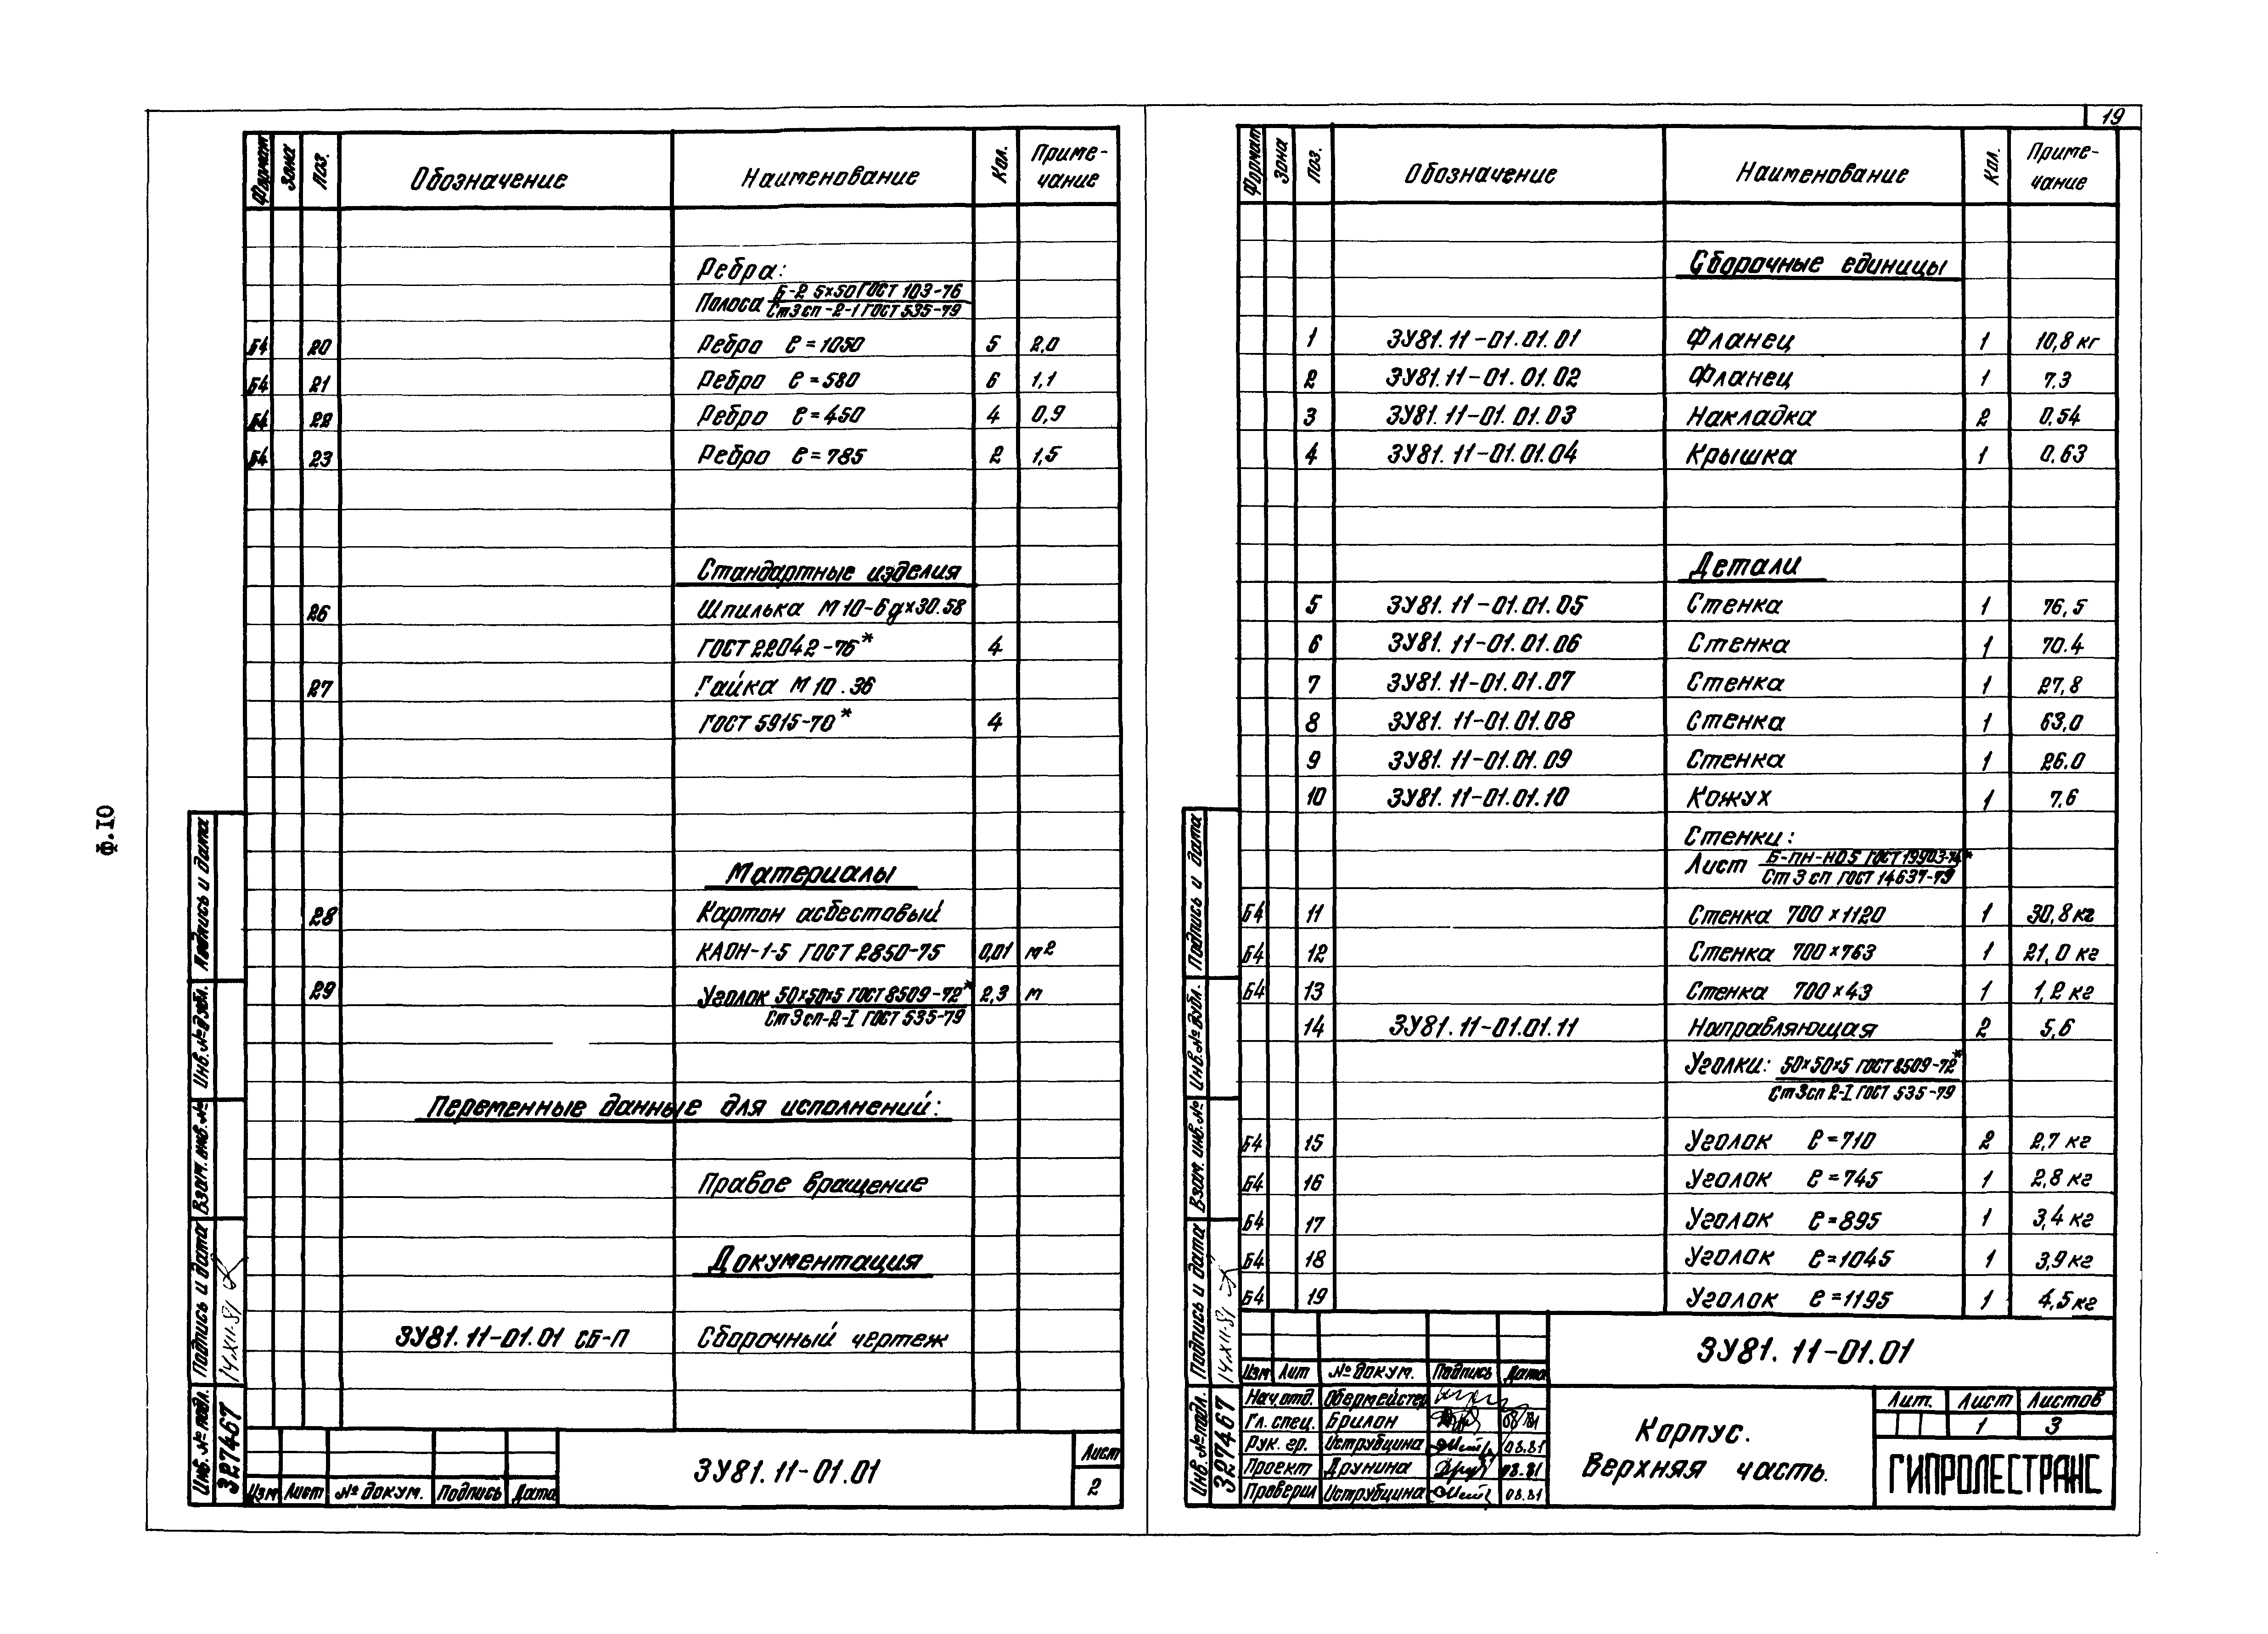 19
Ф.10
Формат Зона Поз. Обозначение Наименование Кол. Приме-
чание
Ребра:
Полоса Б-2 5×50 ГОСТ 103-76
Ст3сп-2-I ГОСТ 535-79
Б4 20 Ребро ℓ=1050 5 2,0
Б4 21 Ребро ℓ=580 6 1,1
Б4 22 Ребро ℓ=450 4 0,9
Б4 23 Ребро ℓ=785 2 1,5
Стандартные изделия
26 Шпилька М10-6g×30.58
ГОСТ 22042-76* 4
27 Гайка М10.36
ГОСТ 5915-70* 4
Материалы
28 Картон асбестовый
КАОН-1-5 ГОСТ 2850-75 0,01 м2
29 Уголок 50×50×5 ГОСТ 8509-72* 2,3 м
Ст3сп-2-I ГОСТ 535-79
Переменные данные для исполнений:
Правое вращение
Документация
ЗУ81.11-01.01 СБ-П Сборочный чертеж
Изм Лист № докум. Подпись Дата
ЗУ81.11-01.01
Лист
2
Подпись и дата
Инв.№ дубл.
Взам. инв.№
Подпись и дата
14.XII-81
Инв.№ подл.
327467
Формат Зона Поз. Обозначение Наименование Кол. Приме-
чание
Сборочные единицы
1 ЗУ81.11-01.01.01 Фланец 1 10,8 кг
2 ЗУ81.11-01.01.02 Фланец 1 7,3
3 ЗУ81.11-01.01.03 Накладка 2 0,54
4 ЗУ81.11-01.01.04 Крышка 1 0,63
Детали
5 ЗУ81.11-01.01.05 Стенка 1 76,5
6 ЗУ81.11-01.01.06 Стенка 1 70.4
7 ЗУ81.11-01.01.07 Стенка 1 27,8
8 ЗУ81.11-01.01.08 Стенка 1 63,0
9 ЗУ81.11-01.01.09 Стенка 1 26.0
10 ЗУ81.11-01.01.10 Кожух 1 7,6
Стенки:
Лист Б-ПН-НО5 ГОСТ 19903-74*
Ст 3 сп ГОСТ 14637-79
Б4 11 Стенка 700×1120 1 30,8 кг
Б4 12 Стенка 700×763 1 21,0 кг
Б4 13 Стенка 700×43 1 1,2 кг
14 ЗУ81.11-01.01.11 Направляющая 2 5,6
Уголки: 50×50×5 ГОСТ 8509-72*
Ст3сп 2-I ГОСТ 535-79
Б4 15 Уголок ℓ=710 2 2,7 кг
Б4 16 Уголок ℓ=745 1 2,8 кг
Б4 17 Уголок ℓ=895 1 3,4 кг
Б4 18 Уголок ℓ=1045 1 3,9 кг
Б4 19 Уголок ℓ=1195 1 4,5 кг
ЗУ81.11-01.01
Изм Лит № докум. Подпись Дата
Нач.отд. Обермейстер
Гл.спец. Брилон
Рук. гр. Иструбцина 08.81
Проект Друнина 08.81
Проверил Иструбцина 08.81
Корпус.
Верхняя часть.
Лит. Лист Листов
1 3
ГИПРОЛЕСТРАНС
Подпись и дата
Инв.№ дубл.
Взам. инв.№
Подпись и дата
14.XII-81
Инв.№ подл.
327467